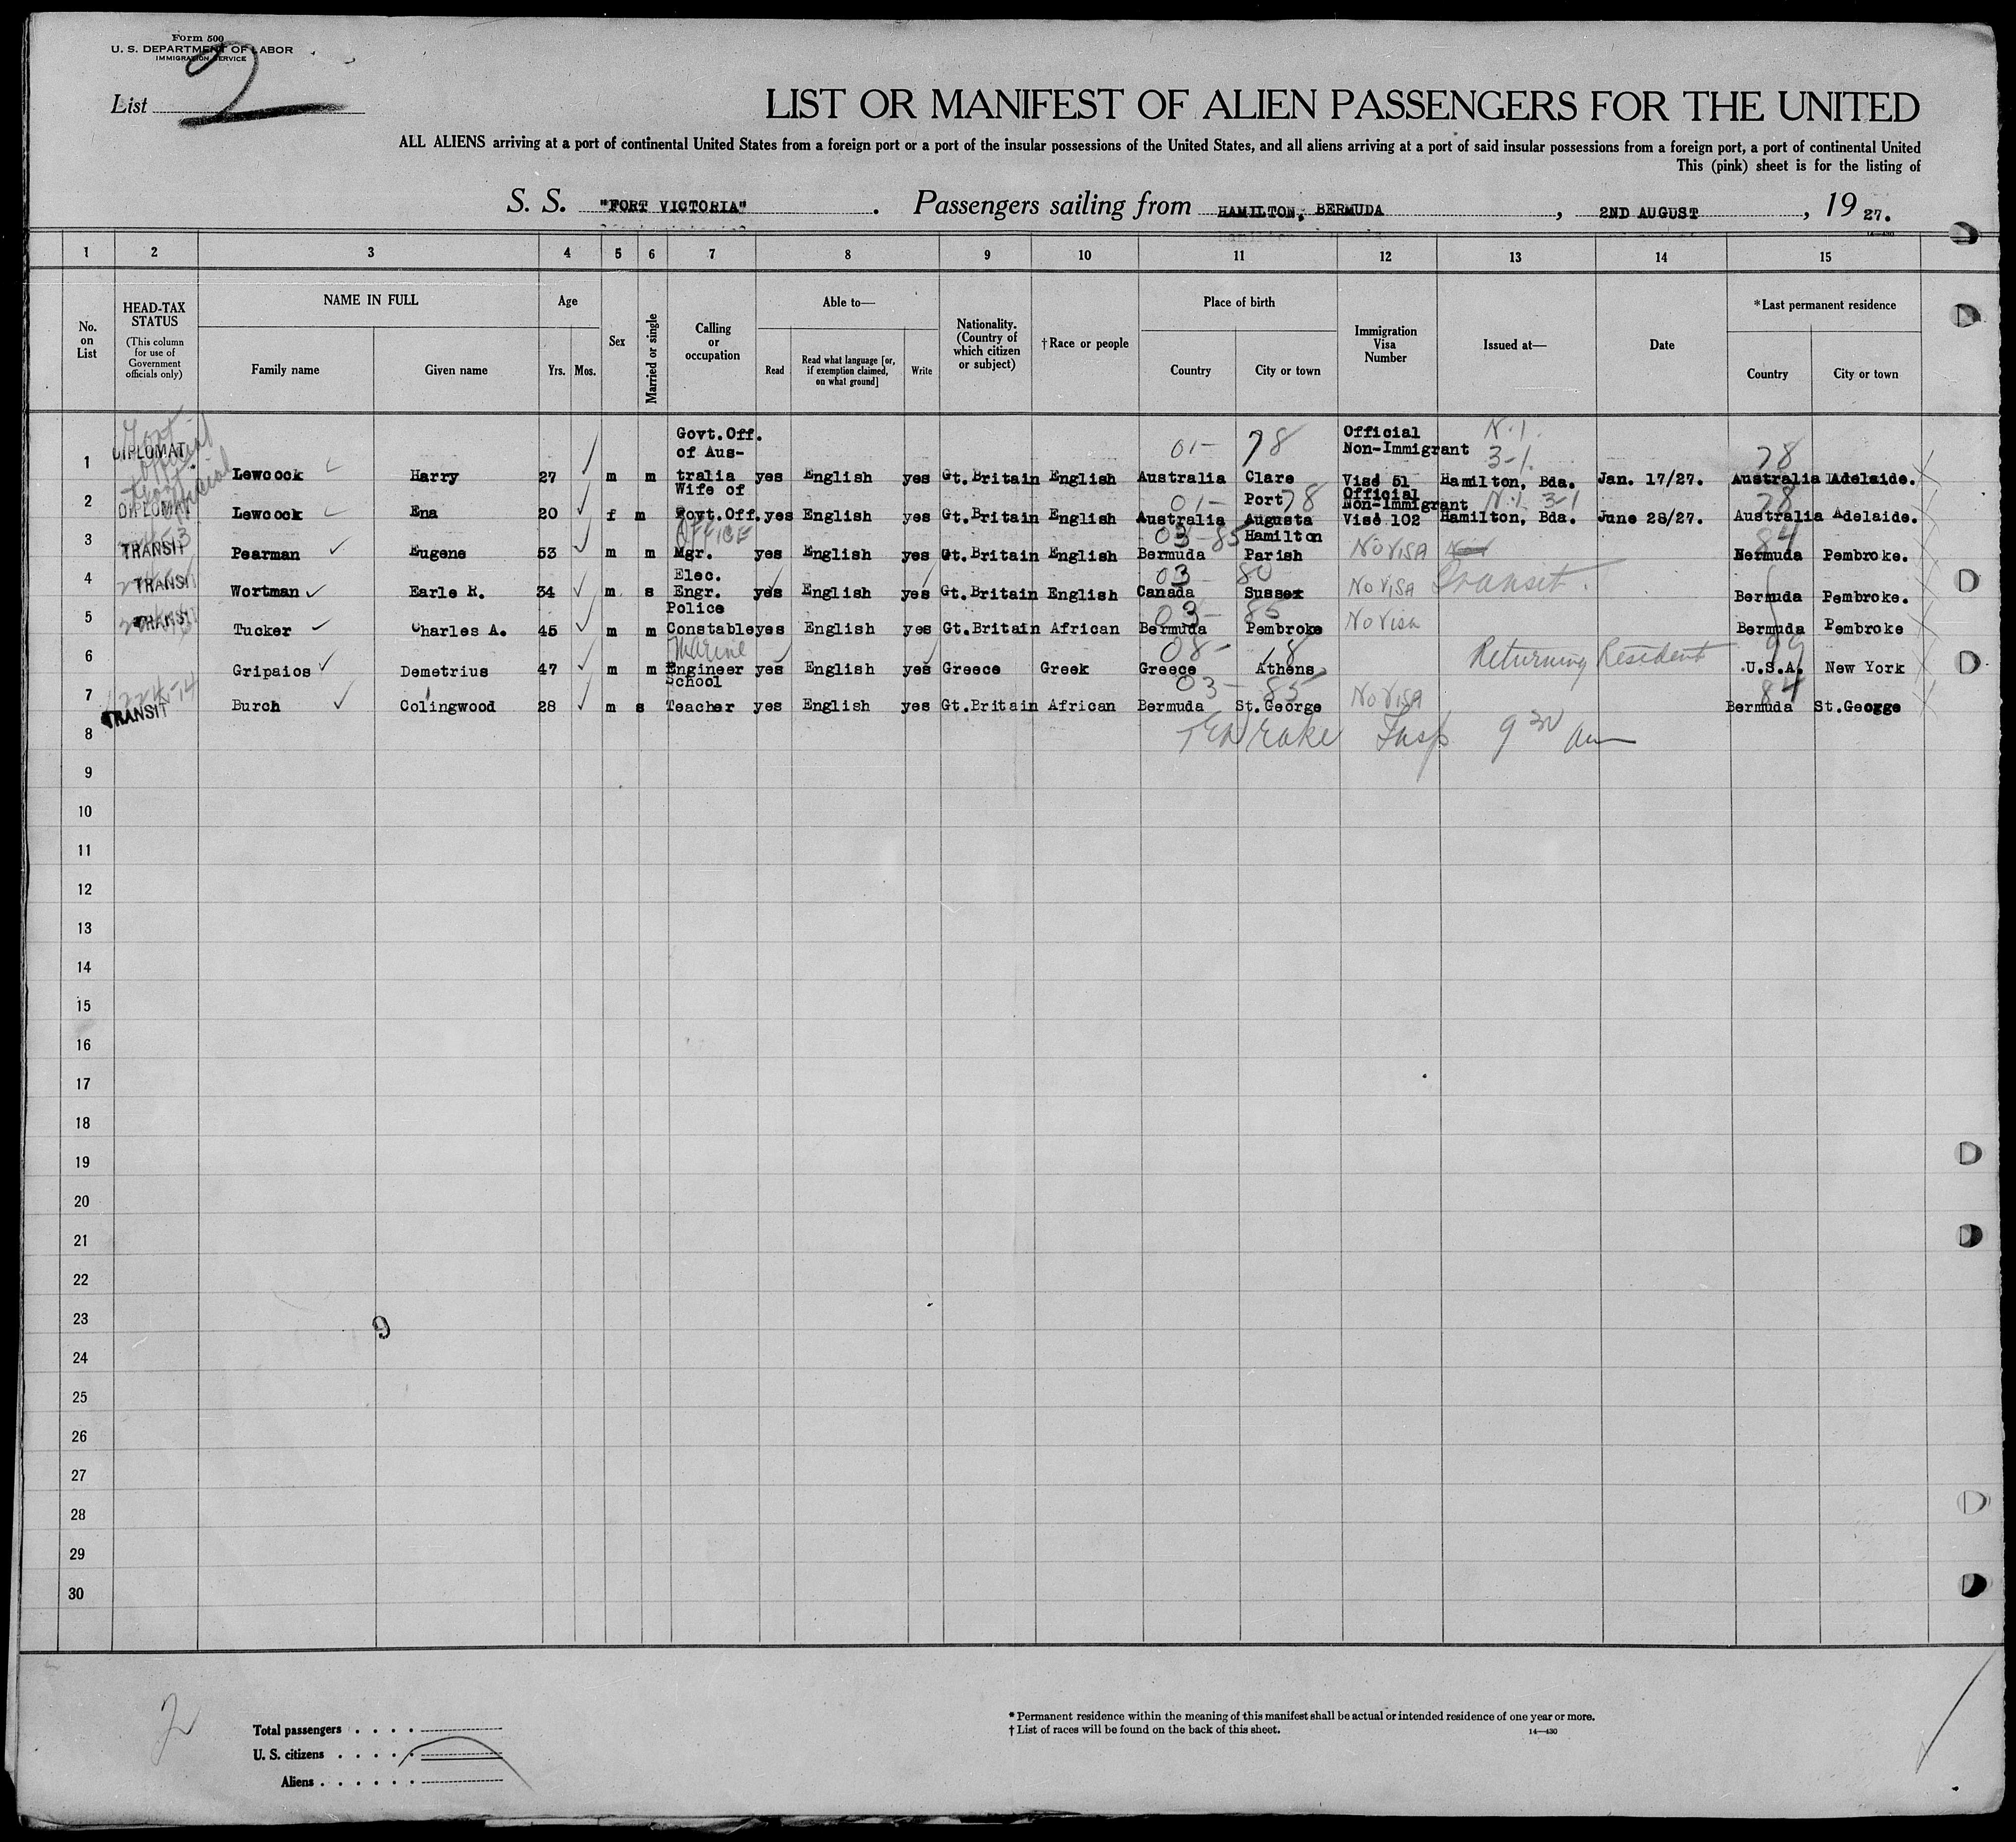 Form 500
U. S. DEPARTMENT OF LABOR
IMMIGRATION SERVICE
List 2
LIST OR MANIFEST OF ALIEN PASSENGERS FOR THE UNITED
ALL ALIENS arriving at a port of continental United States from a foreign port or a port of the insular possessions of the United States, and all aliens arriving at a port of said insular possessions from a foreign port, a port of continental United
This (pink) sheet is for the listing of
S. S. "FORT VICTORIA". Passengers sailing from HAMILTON, BERMUDA, 2ND AUGUST, 19 27.
14-430
1 2 3 4 5 6 7 8 9 10 11 12 13 14 15
No. on List
HEAD-TAX STATUS
(This column for use of Government officials only)
NAME IN FULL
Family name Given name
Age
Yrs. Mos.
Sex
Married or single
Calling or occupation
Able to—
Read
Read what language [or, if exemption claimed, on what ground]
Write
Nationality. (Country of which citizen or subject)
†Race or people
Place of birth
Country City or town
Immigration Visa Number
Issued at—
Date
*Last permanent residence
Country City or town
1 DIPLOMAT Govt Official Lewcock Harry 27 m m Govt.Off. of Australia yes English yes Gt.Britain English 01- 78 Australia Clare Official Non-Immigrant Visé 51 N.1. 3-1. Hamilton, Bda. Jan. 17/27. 78 Australia Adelaide.
2 DIPLOMAT Govt Official Lewcock Ena 20 f m Wife of Govt.Off. yes English yes Gt.Britain English 01- 78 Australia Port Augusta Official Non-Immigrant Visé 102 N.1 3-1 Hamilton, Bda. June 28/27. 78 Australia Adelaide.
3 TRANSIT Pearman Eugene 53 m m OFFICE Mgr. yes English yes Gt.Britain English 03-85 Bermuda Hamilton Parish NO VISA 84 Bermuda Pembroke.
4 TRANSIT Wortman Earle R. 34 m s Elec. Engr. yes English yes Gt.Britain English 03- 80 Canada Sussex NO VISA Transit. Bermuda Pembroke.
5 TRANSIT Tucker Charles A. 45 m m Police Constable yes English yes Gt.Britain African 03- 85 Bermuda Pembroke No Visa Bermuda Pembroke
6 Gripaios Demetrius 47 m m Marine Engineer yes English yes Greece Greek 08- 18 Greece Athens Returning Resident 99 U.S.A. New York
7 TRANSIT Burch Colingwood 28 m s School Teacher yes English yes Gt.Britain African 03- 85 Bermuda St.George NO VISA 84 Bermuda St.George
8 Drake Insp 9 30 am
9
10
11
12
13
14
15
16
17
18
19
20
21
22
23
9
24
25
26
27
28
29
30
2
Total passengers
U. S. citizens
Aliens
* Permanent residence within the meaning of this manifest shall be actual or intended residence of one year or more.
† List of races will be found on the back of this sheet.
14—430